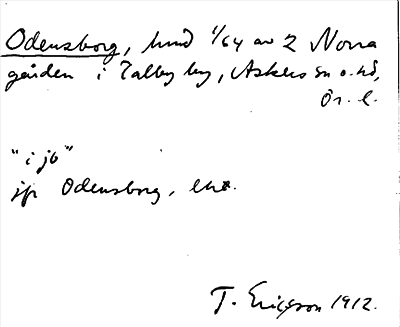 Odensborg, hmd 1/64 av 2 Norra
gården i Talby by, Askers sn o. hd,
Ör. l.
"i jb"
jfr Odensborg, lht.
T. Ericsson 1912.